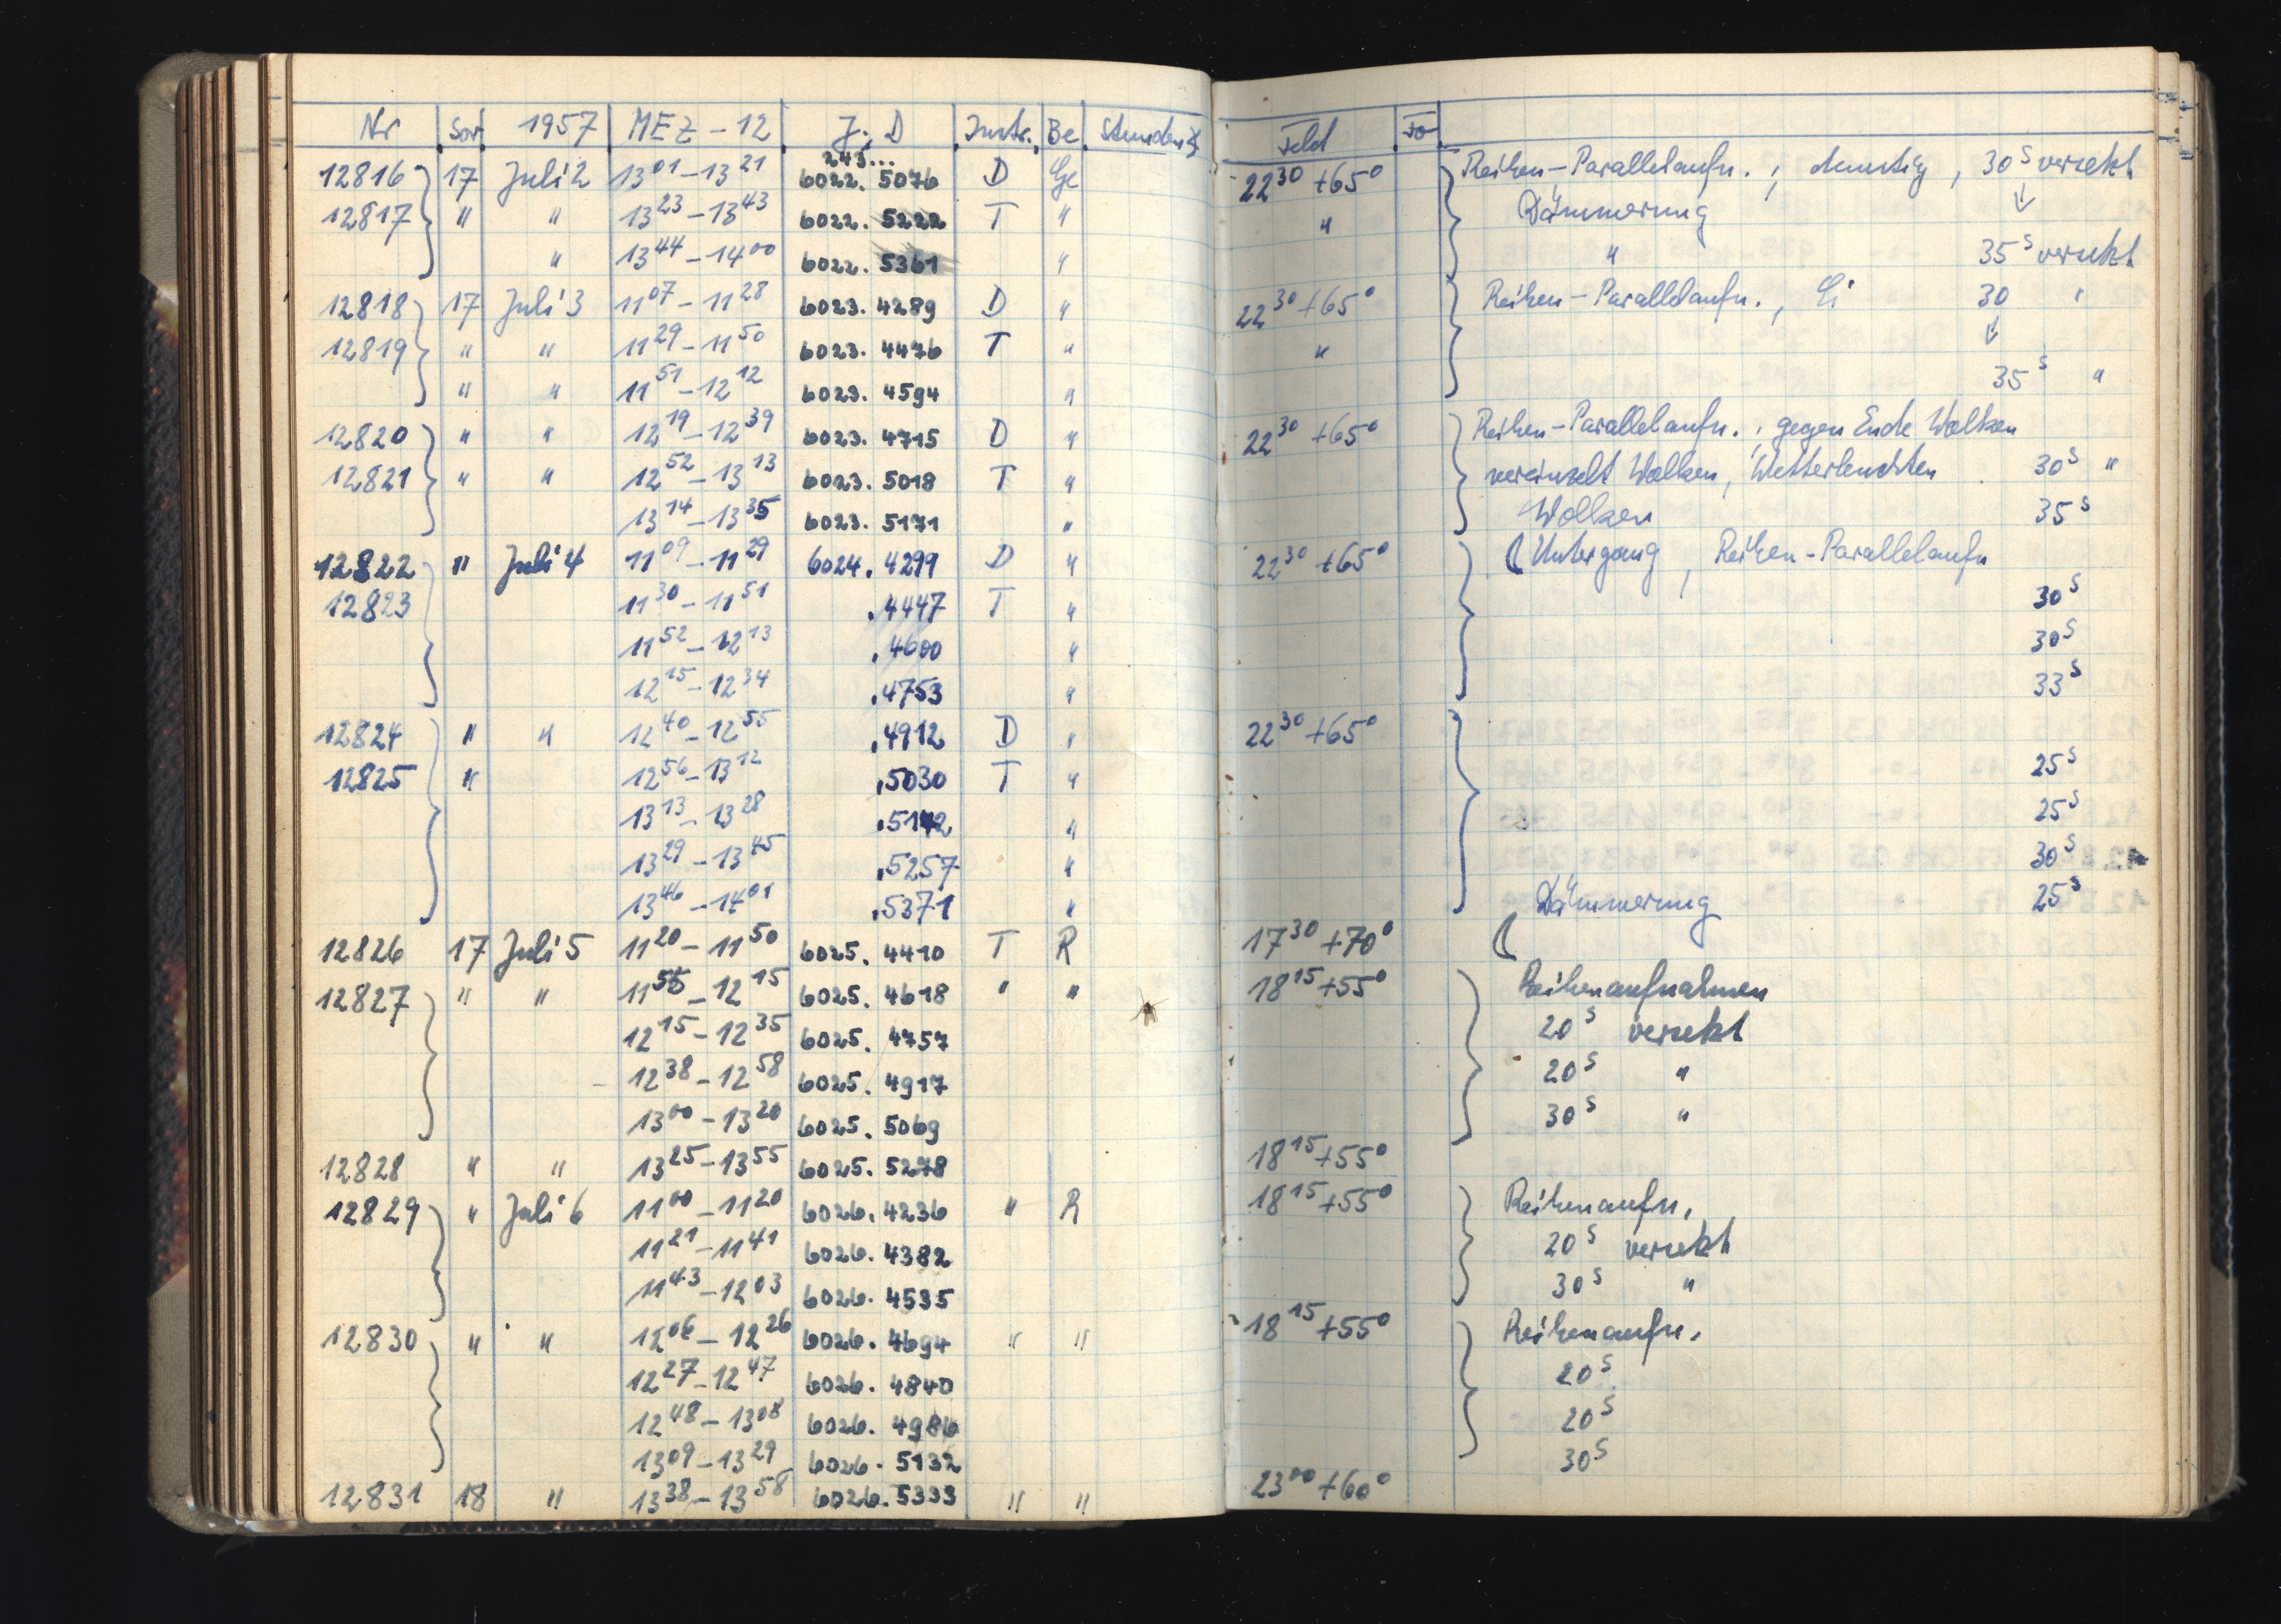 Nr Sor 1957 MEZ - 12 J. D Instr. Be Stunden Feld
243...
12816 17 Juli 2 13 01 - 13 21 6022. 5076 D Ge 22 30 +65° Reihen-Parallelaufn. ; dunstig, 30 s versetzt
12817 " " 13 23 - 13 43 6022. 5222 T " " Dämmerung ↓
" 13 44 - 14 00 6022. 5361 " " 35 s versetzt
12818 17 Juli 3 11 07 - 11 28 6023. 4289 D " 22 30 +65° Reihen-Parallelaufn., Ci 30 "
12819 " " 11 29 - 11 50 6023. 4476 T " " ↓
" " 11 51 - 12 12 6023. 4594 " 35 s "
12820 " " 12 19 - 12 39 6023. 4715 D " 22 30 +65° Reihen-Parallelaufn. ; gegen Ende Wolken
12821 " " 12 52 - 13 13 6023. 5018 T " vereinzelt Wolken, Wetterleuchten 30 s "
13 14 - 13 35 6023. 5171 " Wolken 35 s
12822 " Juli 4 11 09 - 11 29 6024. 4299 D " 22 30 +65° ☾ Untergang, Reihen-Parallelaufn
12823 11 30 - 11 51 .4447 T " 30 s
11 52 - 12 13 .4600 " 30 s
12 15 - 12 34 .4753 " 33 s
12824 " " 12 40 - 12 55 .4912 D " 22 30 +65°
12825 " 12 56 - 13 12 .5030 T " 25 s
13 13 - 13 28 .5142 " 25 s
13 29 - 13 45 .5257 " 30 s
13 46 - 14 01 .5371 " Dämmerung 25 s
12826 17 Juli 5 11 20 - 11 50 6025. 4410 T R 17 30 +70° ☾
12827 " " 11 55 - 12 15 6025. 4618 " " 18 15 +55° Reihenaufnahmen
12 15 - 12 35 6025. 4757 20 s versetzt
12 38 - 12 58 6025. 4917 20 s "
13 00 - 13 20 6025. 5069 30 s "
12828 " " 13 25 - 13 55 6025. 5278 18 15 +55°
12829 " Juli 6 11 00 - 11 20 6026. 4236 " R 18 15 +55° Reihenaufn,
11 21 - 11 41 6026. 4382 20 s versetzt
11 43 - 12 03 6026. 4535 30 s "
12830 " " 12 06 - 12 26 6026. 4694 " " 18 15 +55° Reihenaufn,
12 27 - 12 47 6026. 4840 20 s
12 48 - 13 08 6026. 4986 20 s
13 09 - 13 29 6026. 5132 30 s
12831 18 " 13 38 - 13 58 6026. 5333 " " 23 00 +60°